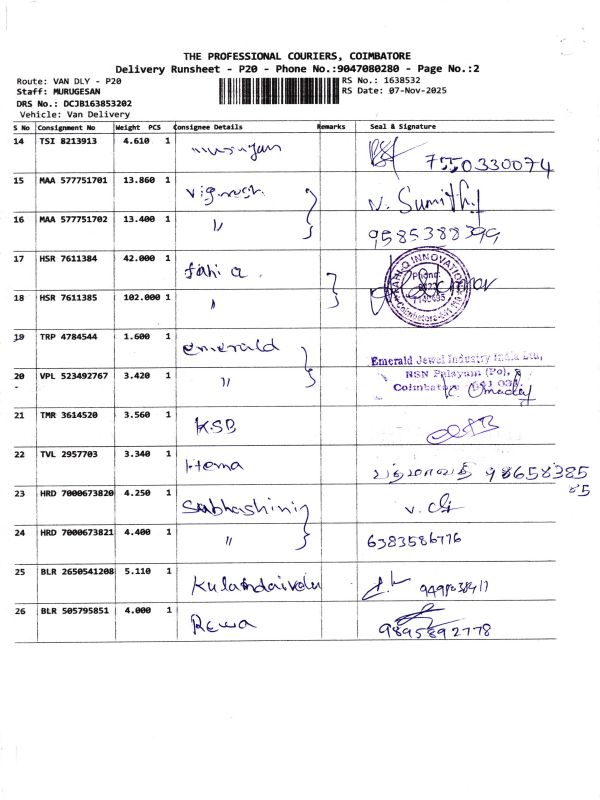 THE PROFESSIONAL COURIERS, COIMBATORE
Delivery Runsheet - P20 - Phone No.:9047080280 - Page No.:2
Route: VAN DLY - P20 RS No.: 1638532
Staff: MURUGESAN RS Date: 07-Nov-2025
DRS No.: DCJB163853202
Vehicle: Van Delivery
S No Consignment No Weight PCS Consignee Details Remarks Seal & Signature
14 TSI 8213913 4.610 1 murugan 7550330074
15 MAA 577751701 13.860 1 Vignesh N. Sumithy
16 MAA 577751702 13.400 1 〃 9585388399
17 HSR 7611384 42.000 1
18 HSR 7611385 102.000 1 〃
19 TRP 4784544 1.600 1 emerald Emerald Jewel Industry India Ltd,
20 VPL 523492767 3.420 1 〃 NSN Palayam (Po),
Coimbatore
21 TMR 3614520 3.560 1 KSB
22 TVL 2957703 3.340 1 Hema பத்மாவதி 98658385
85
23 HRD 7000673820 4.250 1 Subhashini
24 HRD 7000673821 4.400 1 〃 6383586776
25 BLR 2650541208 5.110 1 Kulandaivelu
26 BLR 505795851 4.000 1 Rewa 9895892778